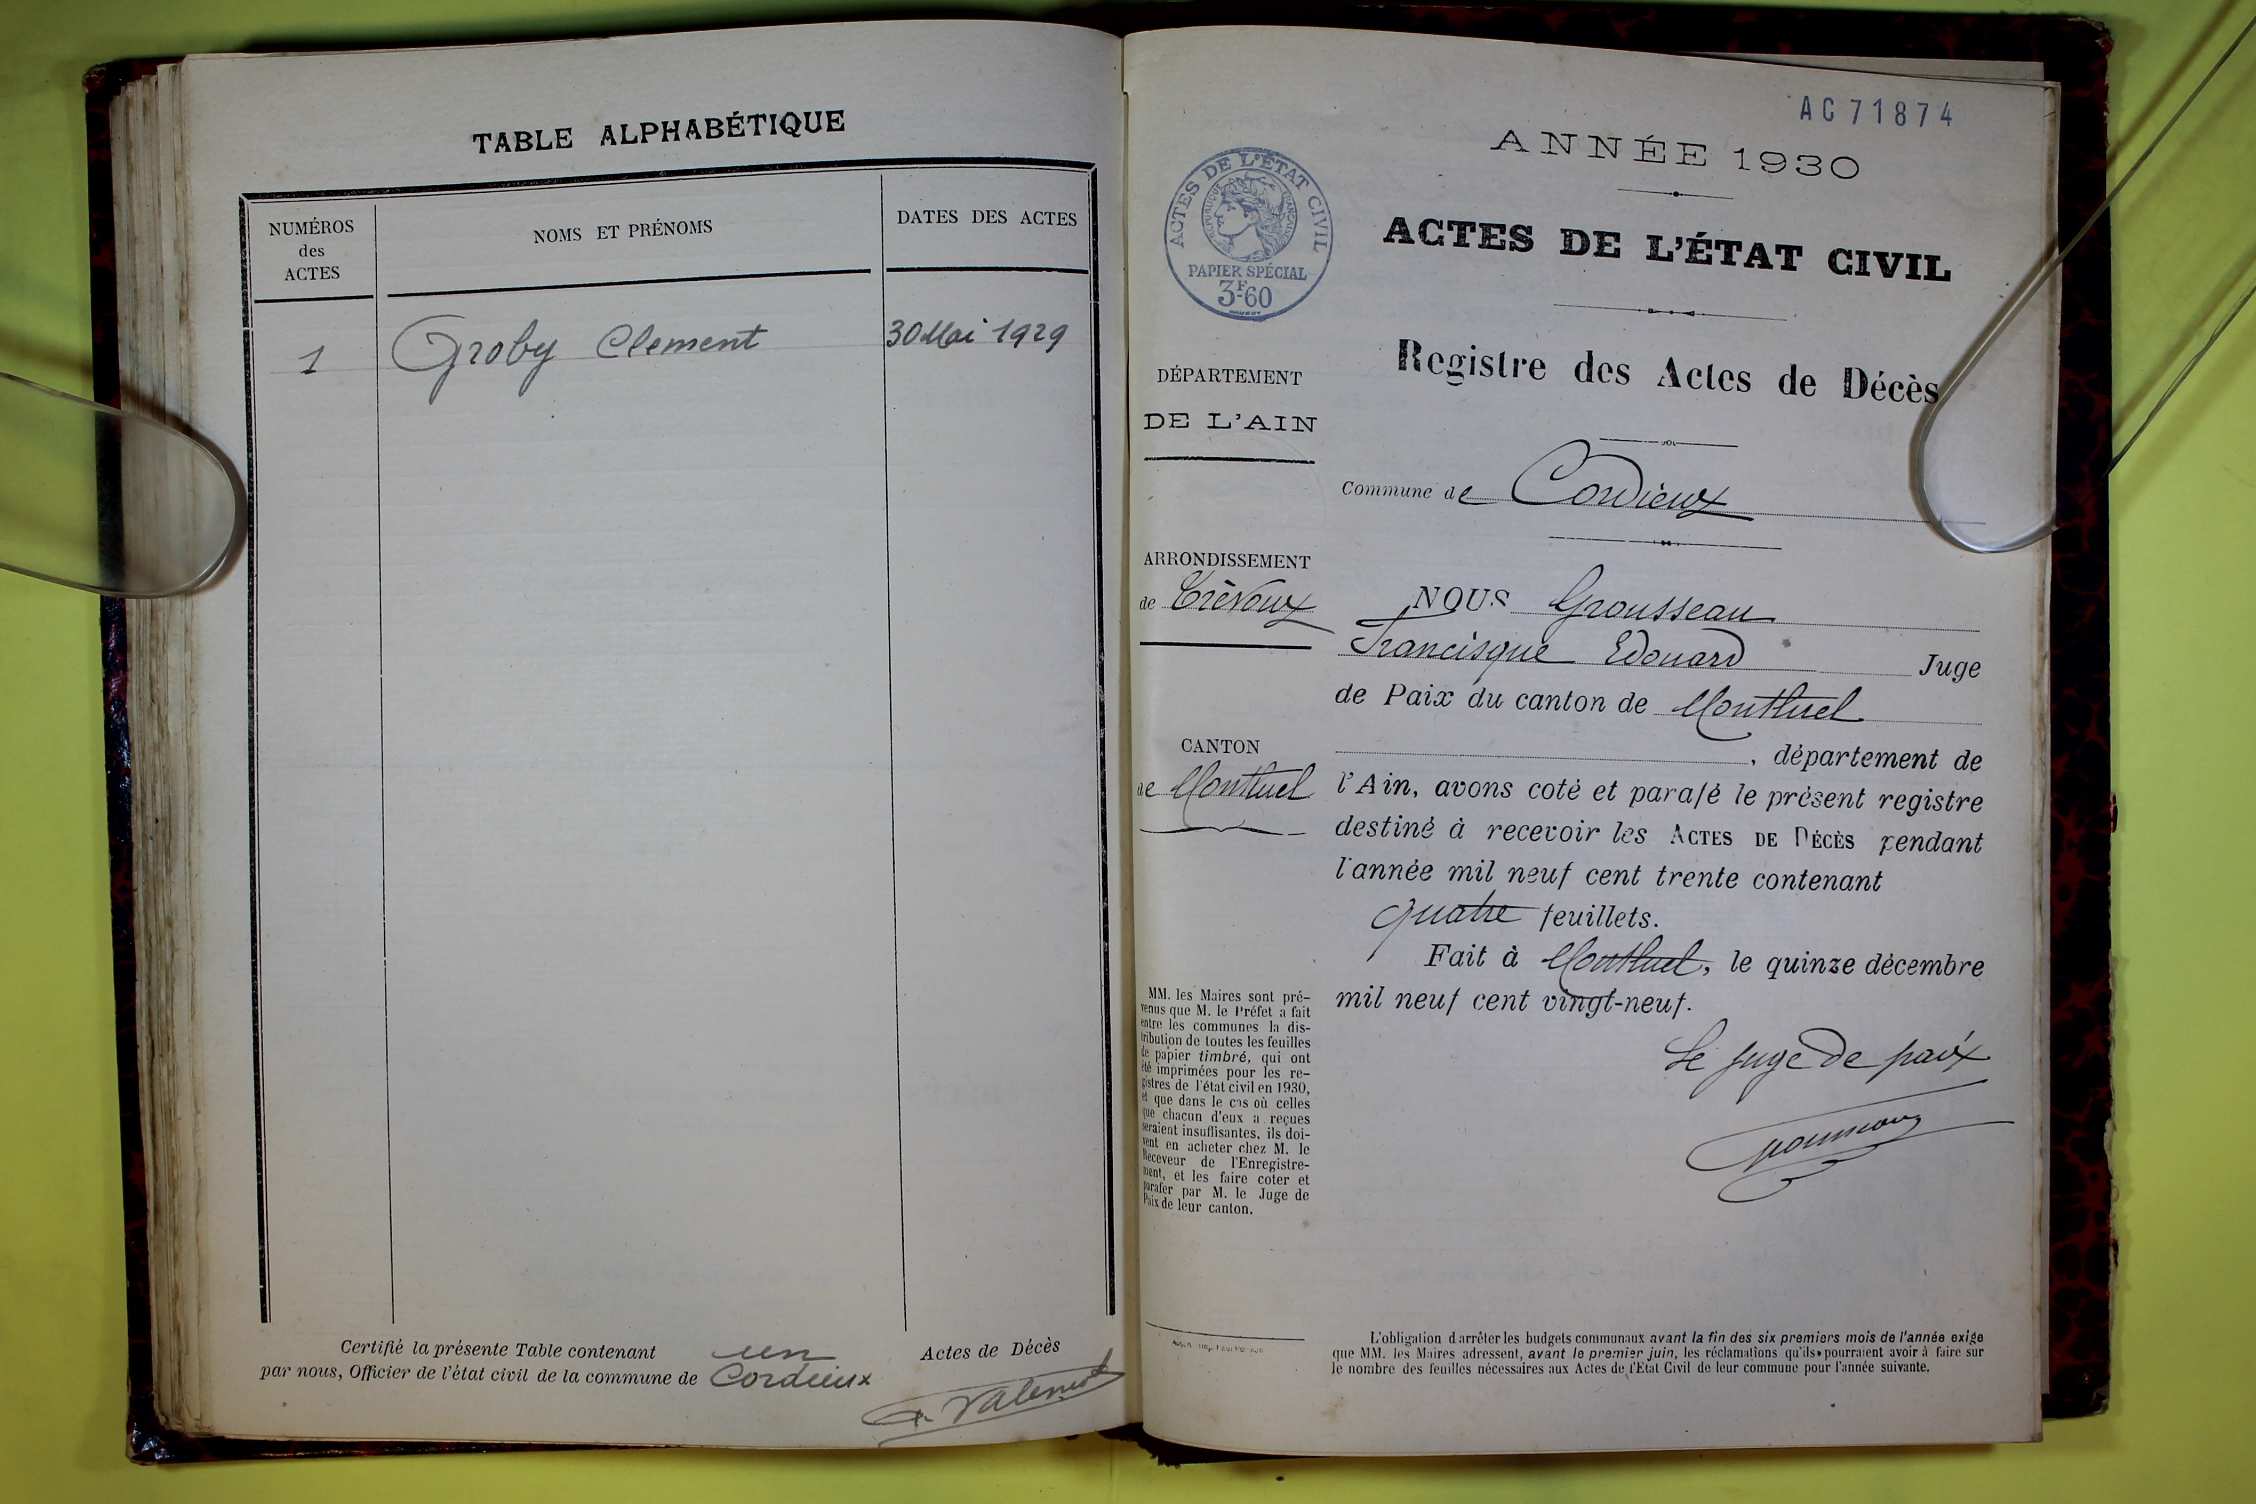 TABLE ALPHABÉTIQUE
NUMÉROS
des
ACTES
NOMS ET PRÉNOMS
DATES DES ACTES
1 Groby Clement 30 Mai 1929
Certifié la présente Table contenant un Actes de Décès
par nous, Officier de l'état civil de la commune de Cordieux
AC 71874
ANNÉE 1930
ACTES DE L'ÉTAT CIVIL
RÉPUBLIQUE FRANÇAISE
PAPIER SPÉCIAL
3F-60
ACTES DE L'ÉTAT CIVIL
Registre des Actes de Décès
DÉPARTEMENT
DE L'AIN
Commune de Cordieux
ARRONDISSEMENT
de Trévoux
CANTON
de Montluel
NOUS Grousseau
Francisque Edouard Juge
de Paix du canton de Montluel
, département de
l'Ain, avons coté et parafé le présent registre
destiné à recevoir les ACTES DE DÉCÈS pendant
l'année mil neuf cent trente contenant
quatre feuillets.
Fait à Montluel, le quinze décembre
mil neuf cent vingt-neuf.
Le juge de paix
MM. les Maires sont pré-
venus que M. le Préfet a fait
entre les communes la dis-
tribution de toutes les feuilles
de papier timbré, qui ont
été imprimées pour les re-
gistres de l'état civil en 1930,
et que dans le cas où celles
que chacun d'eux a reçues
seraient insuffisantes, ils doi-
vent en acheter chez M. le
Receveur de l'Enregistre-
ment, et les faire coter et
parafer par M. le Juge de
Paix de leur canton.
L'obligation d'arrêter les budgets communaux avant la fin des six premiers mois de l'année exige
que MM. les Maires adressent, avant le premier juin, les réclamations qu'ils pourraient avoir à faire sur
le nombre des feuilles nécessaires aux Actes de l'Etat Civil de leur commune pour l'année suivante.